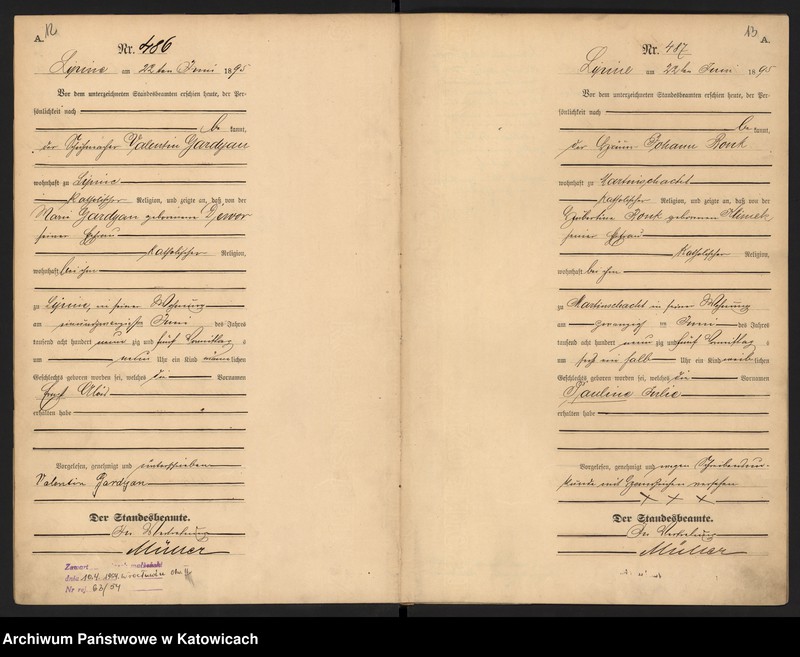 12
A.
Nr. 486
Lipine am 22ten Juni 1895
Vor dem unterzeichneten Standesbeamten erschien heute, der Per-
sönlichkeit nach
be kannt,
der Valentin Gardyan
wohnhaft zu Lipine
katholischer Religion, und zeigte an, daß von der
Marie Gardyan geborenen
seiner Ehefrau
katholischer Religion,
wohnhaft bei ihm
zu Lipine, in seiner Wohnung
am Juni des Jahres
tausend acht hundert neun zig und fünf Vormittags
um neun Uhr ein Kind männ lichen
Geschlechts geboren worden sei, welches die Vornamen
Ernst Alois
erhalten habe
Vorgelesen, genehmigt und unterschrieben
Valentin Gardyan
Der Standesbeamte.
In Vertretung
Müller
Zawarł
dnia 10.4.1954
Nr rej. 63/54
13
A.
Nr. 487
Lipine am 22ten Juni 1895
Vor dem unterzeichneten Standesbeamten erschien heute, der Per-
sönlichkeit nach
be kannt,
der Johann Ronk
wohnhaft zu Martinschacht
katholischer Religion, und zeigte an, daß von der
Ronk geborenen Klimek
seiner Ehefrau
katholischer Religion,
wohnhaft bei ihm
zu Martinschacht in seiner Wohnung
am zwanzig ten Juni des Jahres
tausend acht hundert neun zig und fünf Vormittags
um Uhr ein Kind weib lichen
Geschlechts geboren worden sei, welches die Vornamen
Pauline Julie
erhalten habe
Vorgelesen, genehmigt und wegen Schreibensun-
kunde mit Handzeichen versehen
X X X
Der Standesbeamte.
In Vertretung
Müller
Archiwum Państwowe w Katowicach